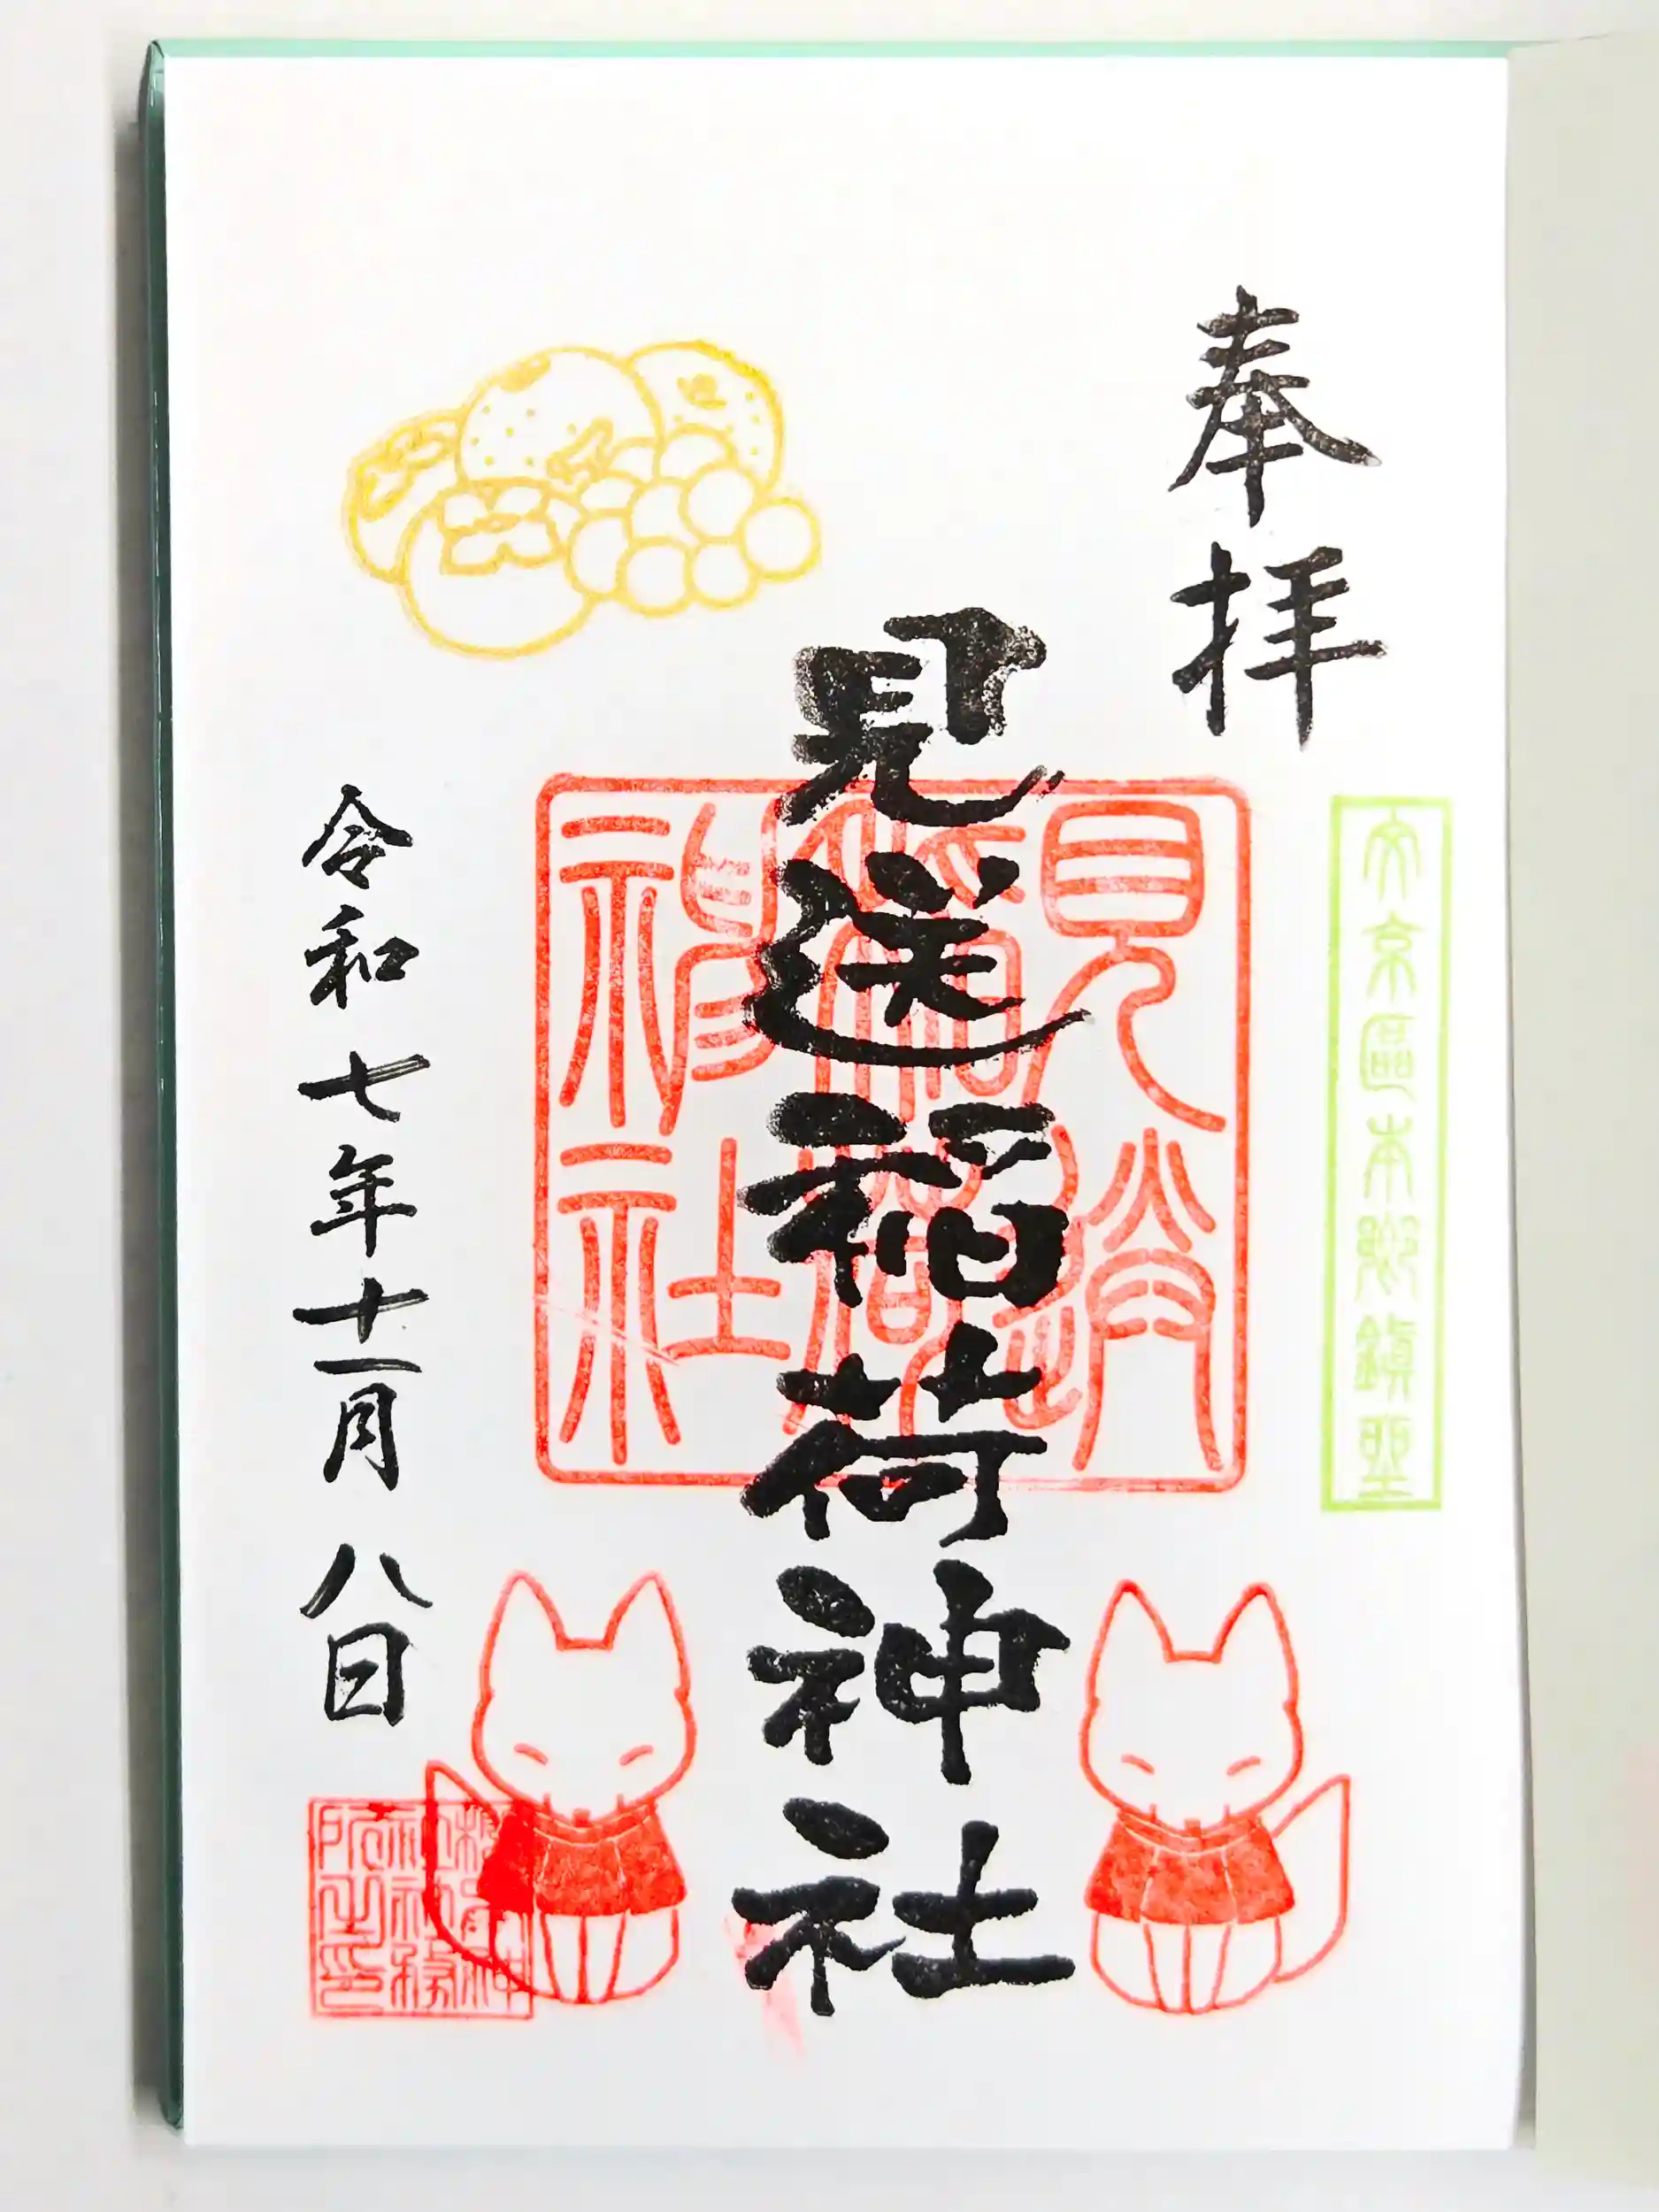 奉拝
文京區本郷鎮座
見送稲荷神社
見送稲荷神社
令和七年十一月八日